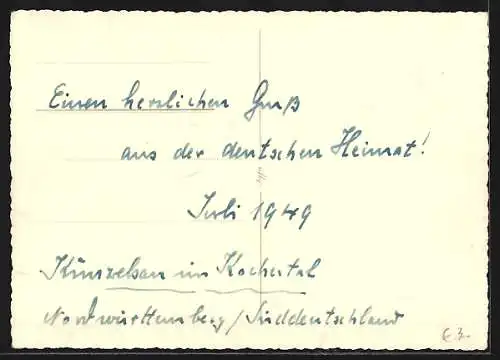 Einen herzlichen Gruß
aus der deutschen Heimat!
Juli 1949
Künzelsau im Kochertal
Nordwürttemberg/Süddeutschland
63.-